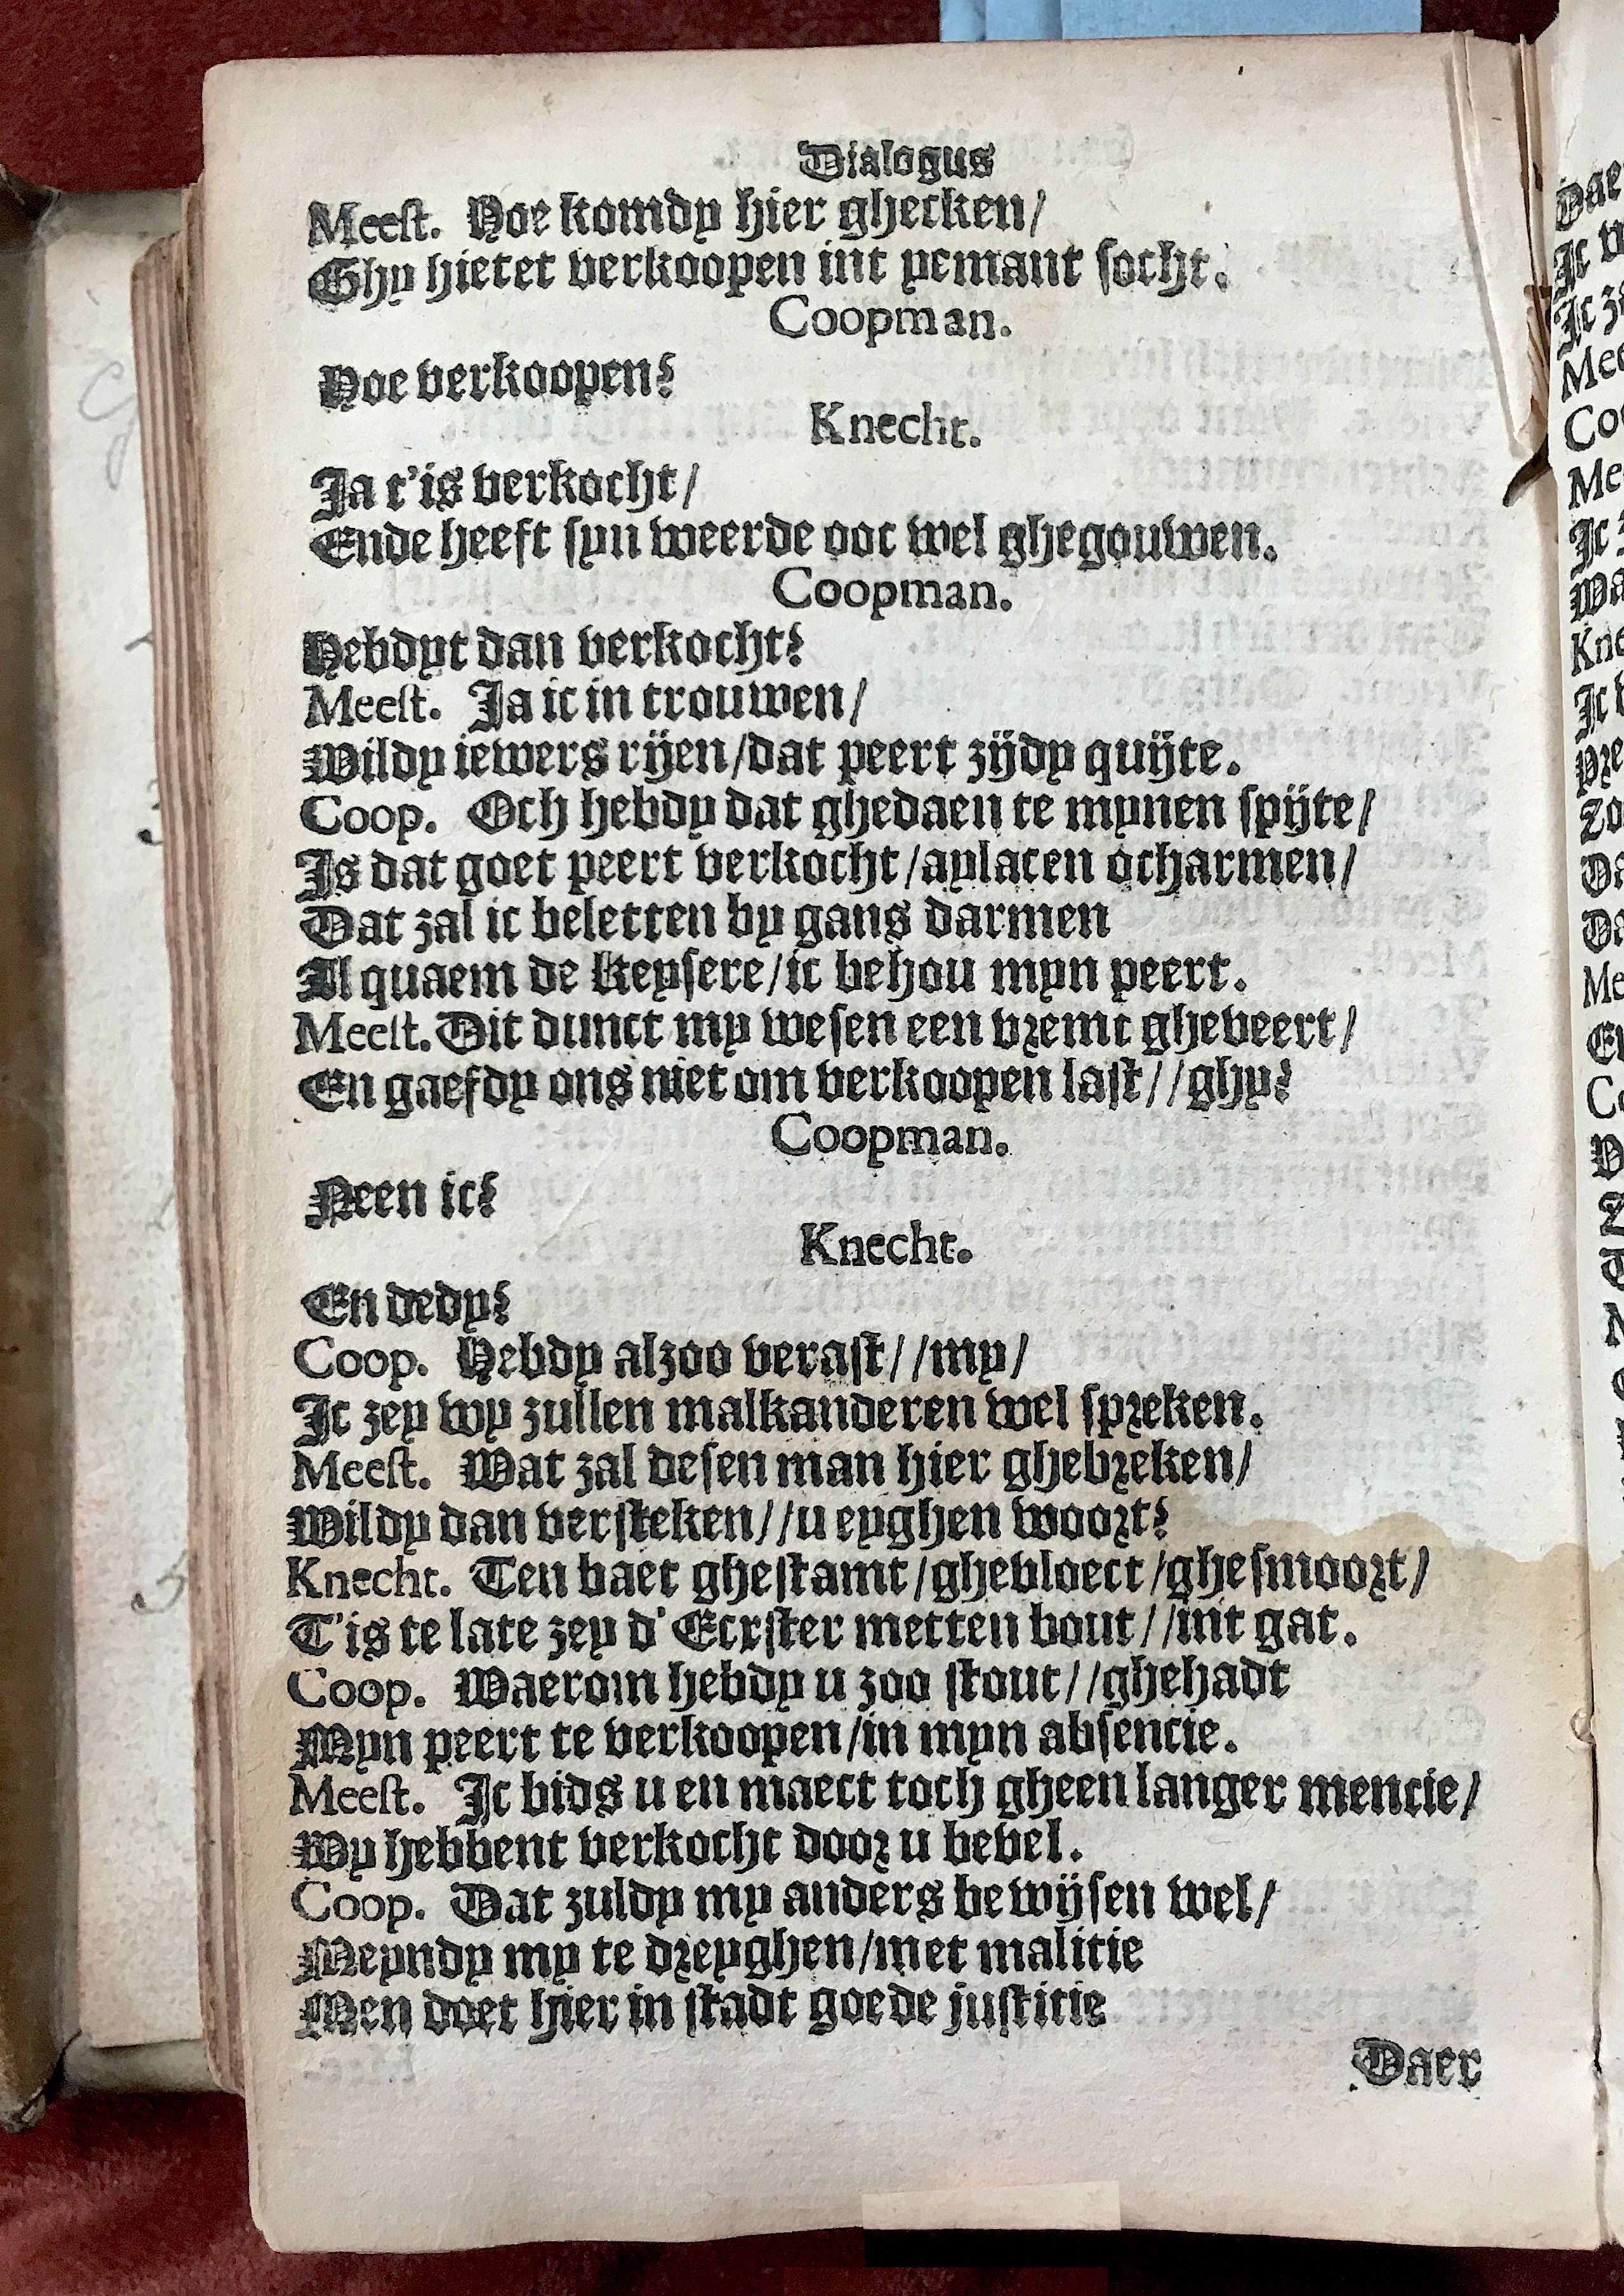 Dialogus
Meest. Hoe komdy hier ghecken/
Ghy hietet verkoopen int yemant socht.
Coopman.
Hoe verkoopen?
Knecht.
Ja t'is verkocht/
Ende heeft syn weerde ooc wel ghegouwen.
Coopman.
Hebdyt dan verkocht?
Meest. Ja ic in trouwen/
Wildy iewers rijen/dat peert zijdy quijte.
Coop. Och hebdy dat ghedaen te mynen spijte/
Is dat goet peert verkocht/aylacen ocharmen/
Dat zal ic beletten by gans darmen
Al quaem de keysere/ic behou myn peert.
Meest. Dit dunct my wesen een vremt gheveert/
En gaefdy ons niet om verkoopen last//ghy?
Coopman.
Neen ic?
Knecht.
En dedy?
Coop. Hebdy alzoo verast//my/
Ic zey wy zullen malkanderen wel spreken.
Meest. Wat zal desen man hier ghebreken/
Wildy dan versteken//u eyghen woort?
Knecht. Ten baet ghestamt/ghevloect/ghesmoort/
T'is te late zey d'Ecxster metten bout//int gat.
Coop. Waerom hebdy u zoo stout//ghehadt
Myn peert te verkoopen/in myn absencie.
Meest. Ic bids u en maect toch gheen langer mencie/
Wy hebbent verkocht door u bevel.
Coop. Dat zuldy my anders bewijsen wel/
Meyndy my te dreyghen/met malitie
Men doet hier in stadt goede justitie
Daer